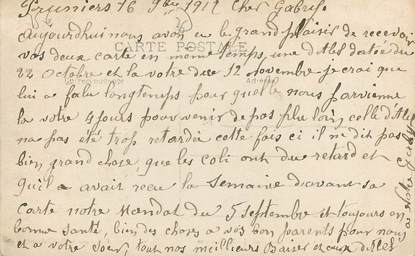 Pruniers 16 9bre 1917 Cher Gabriel
aujourdhui nous avon eu le grand plaisir de recevoir
vos deux carte en meme temps, une datée du
CARTE POSTALE
22 octobre et la votre du 12 novembre je crai que
lui a falu longtemps pour quelle nous parvienne
la votre 4 jours pour venir de pas plus loin, celle
na pas été trop retardée cette fois ci il ne dit pas
bien grand chose, que les coli ont du retard et
quil a avait recu la semaine davant sa
carte notre Mandat du 5 septembre et toujours en
bonne santé, bien des choses a vos bon parents pour nous
et a votre sœur, tout nos meilleurs Baiser et aux